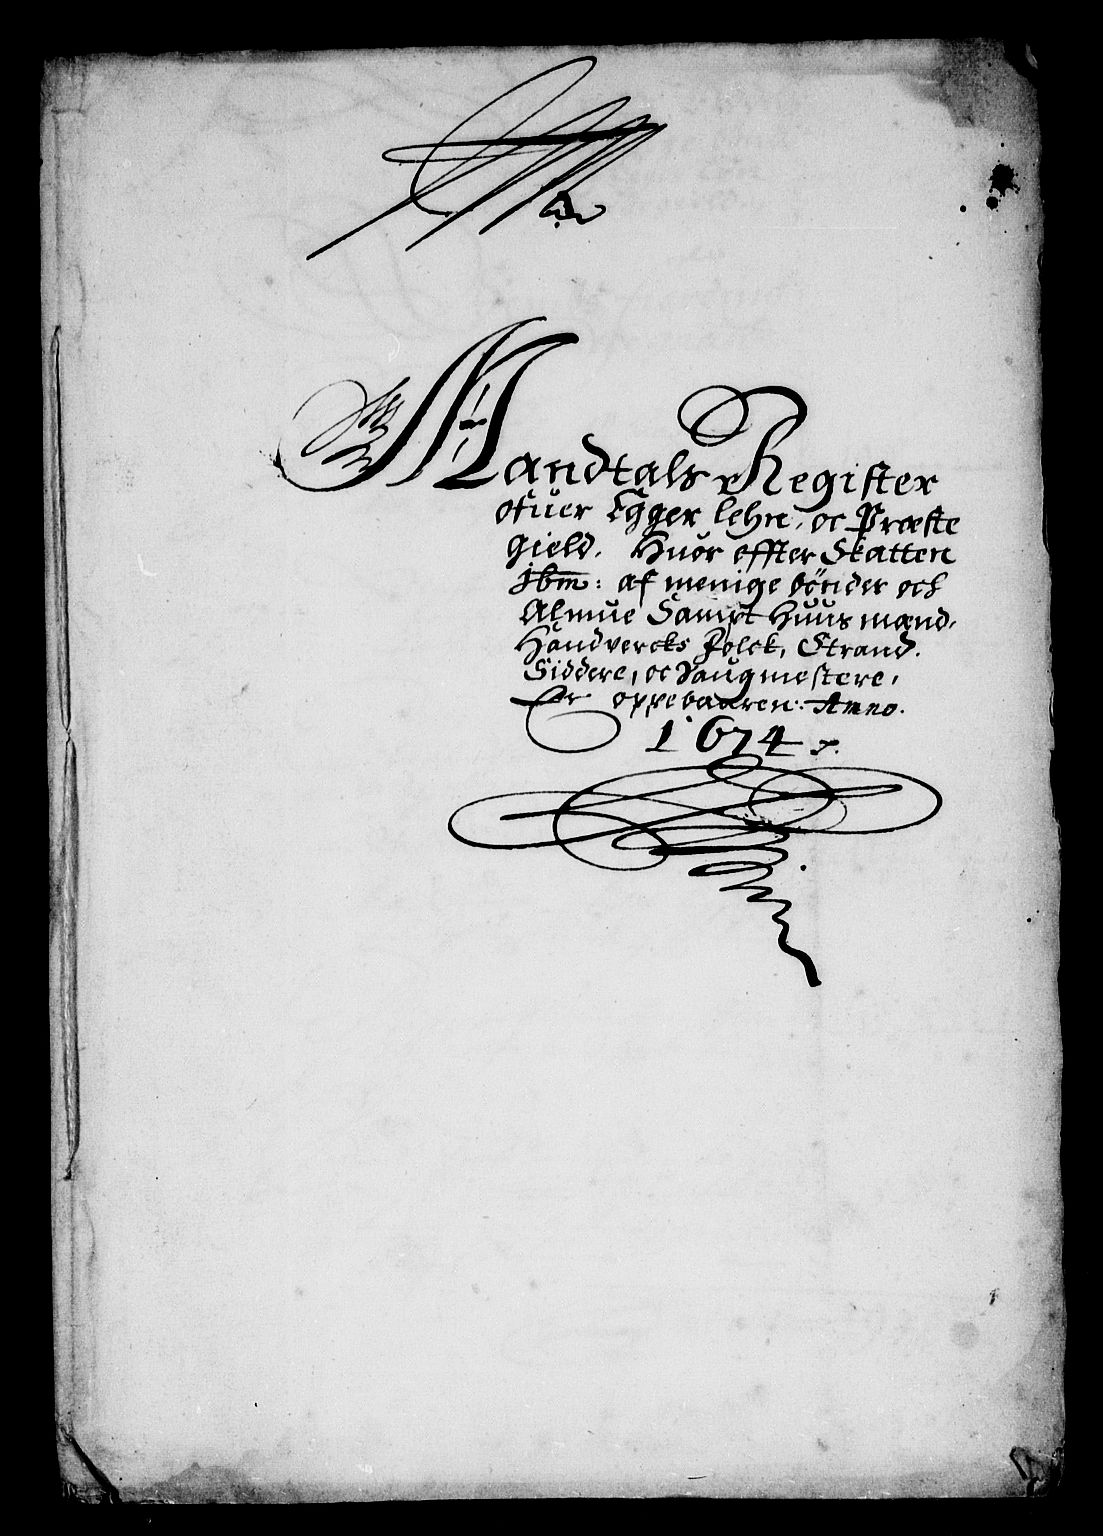 Mandtals Register
ofuer Egger lehn, oc Præste
gield. Huor effter Skatten
Ibm: af menige bönder och
Almue Sampt Huus mænd,
Handvercks Folck, Strand.
Siddere, oc Saugmestere,
Er oppebaaren. Anno.
1674